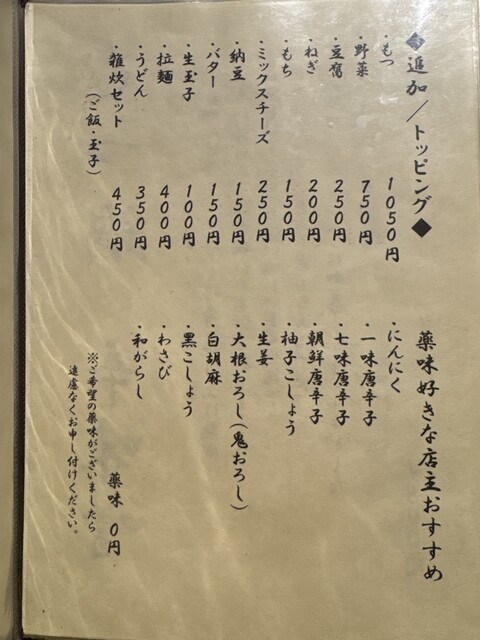 ◆追加／トッピング◆
・もつ 1050円
・野菜 750円
・豆腐 250円
・ねぎ 200円
・もち 150円
・ミックスチーズ 250円
・納豆 150円
・バター 150円
・生玉子 100円
・拉麺 400円
・うどん 350円
・雑炊セット 450円
(ご飯・玉子)
薬味好きな店主おすすめ
・にんにく
・一味唐辛子
・七味唐辛子
・朝鮮唐辛子
・柚子こしょう
・生姜
・大根おろし(鬼おろし)
・白胡麻
・黒こしょう
・わさび
・和がらし
薬味 0円
※ご希望の薬味がございましたら
遠慮なくお申し付けください。